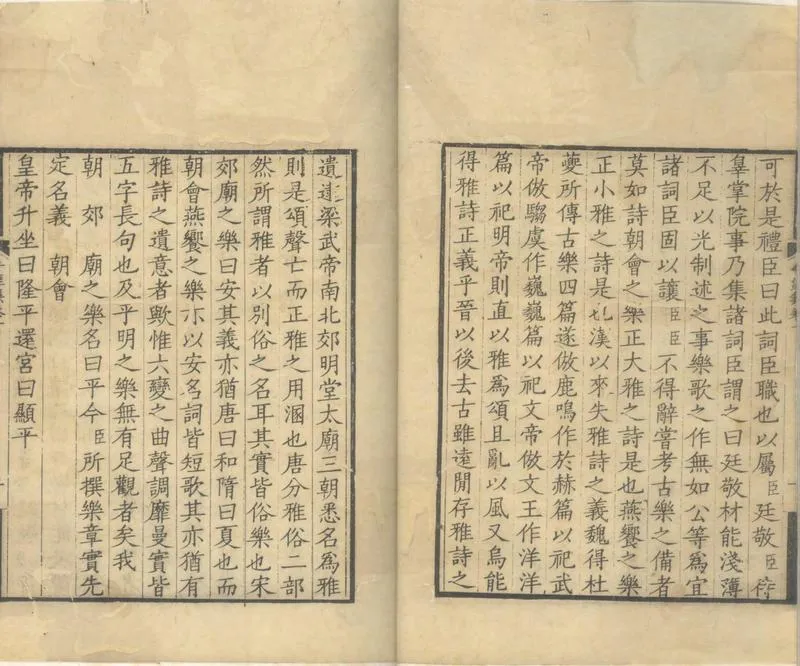 可於是禮臣曰此詞臣職也以屬臣廷敬臣待
辠掌院事乃集諸詞臣謂之曰廷敬材能淺薄
不足以光制述之事樂歌之作無如公等爲宜
諸詞臣固以讓臣臣不得辭嘗考古樂之備者
莫如詩朝會之樂正大雅之詩是也燕饗之樂
正小雅之詩是也漢以來失雅詩之義魏得杜
夔所傳古樂四篇遂倣鹿鳴作於赫篇以祀武
帝倣騶虞作巍巍篇以祀文帝倣文王作洋洋
篇以祀明帝則直以雅爲頌且亂以風又烏能
得雅詩正義乎晉以後去古雖遠閒存雅詩之
遺逮梁武帝南北郊明堂太廟三朝悉名爲雅
則是頌聲亡而正雅之用溷也唐分雅俗二部
然所謂雅者以別俗之名耳其實皆俗樂也宋
郊廟之樂曰安其義亦猶唐曰和隋曰夏也而
朝會燕饗之樂亦以安名詞皆短歌其亦猶有
雅詩之遺意者歟惟六變之曲聲調靡曼實皆
五字長句也及乎明之樂無有足觀者矣我
朝郊廟之樂名曰平今臣所撰樂章實先
定名義 朝會
皇帝升坐曰隆平還宮曰顯平